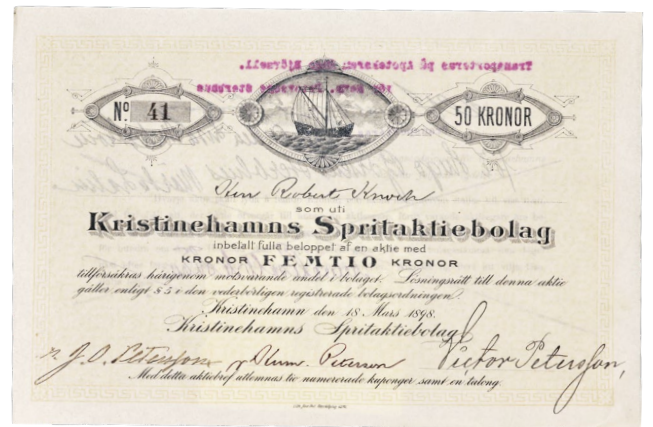 No. 41
50 KRONOR
Herr Robert Knoch
som uti
Kristinehamns Spritaktiebolag
inbetalt fulla beloppet af en aktie med
KRONOR FEMTIO KRONOR
tillförsäkras härigenom motsvarande andel i bolaget. Lösningsrätt till denna aktie
gäller enligt § 5 i den vederbörligen registrerade bolagsordningen.
Kristinehamn den 18 Mars 1898.
Kristinehamns Spritaktiebolag
J. O. Petersson Peterson Victor Petersson,
Med detta aktiebref utlemnas tio numrerade kuponger samt en talong.